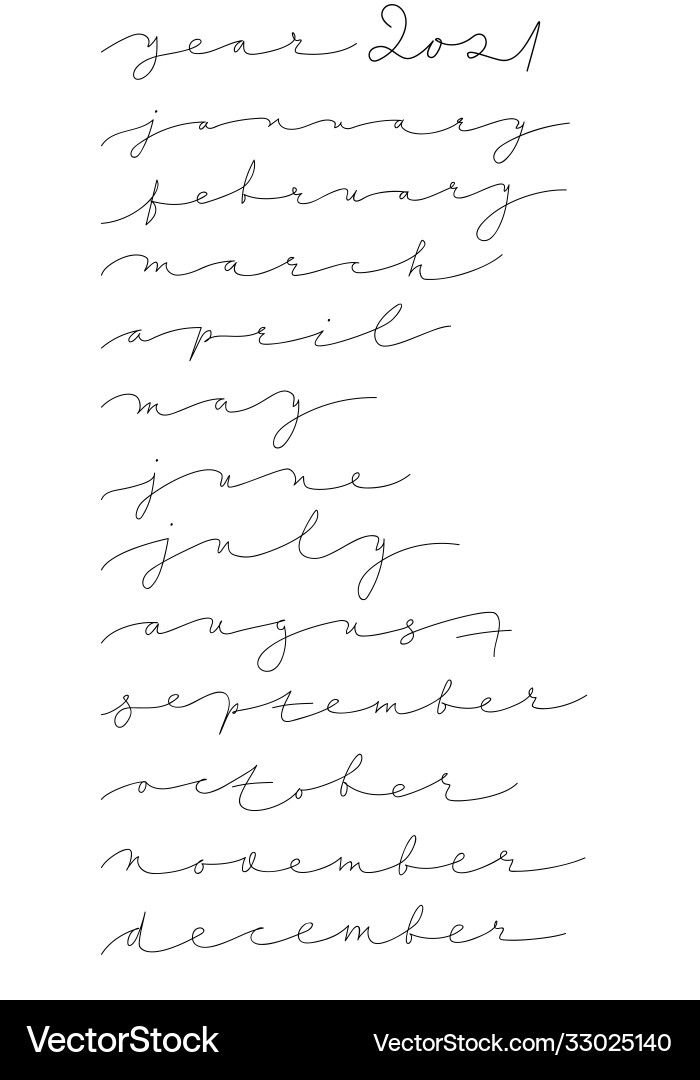 year 2021
january
february
march
april
may
june
july
august
september
october
november
december
VectorStock VectorStock.com/33025140